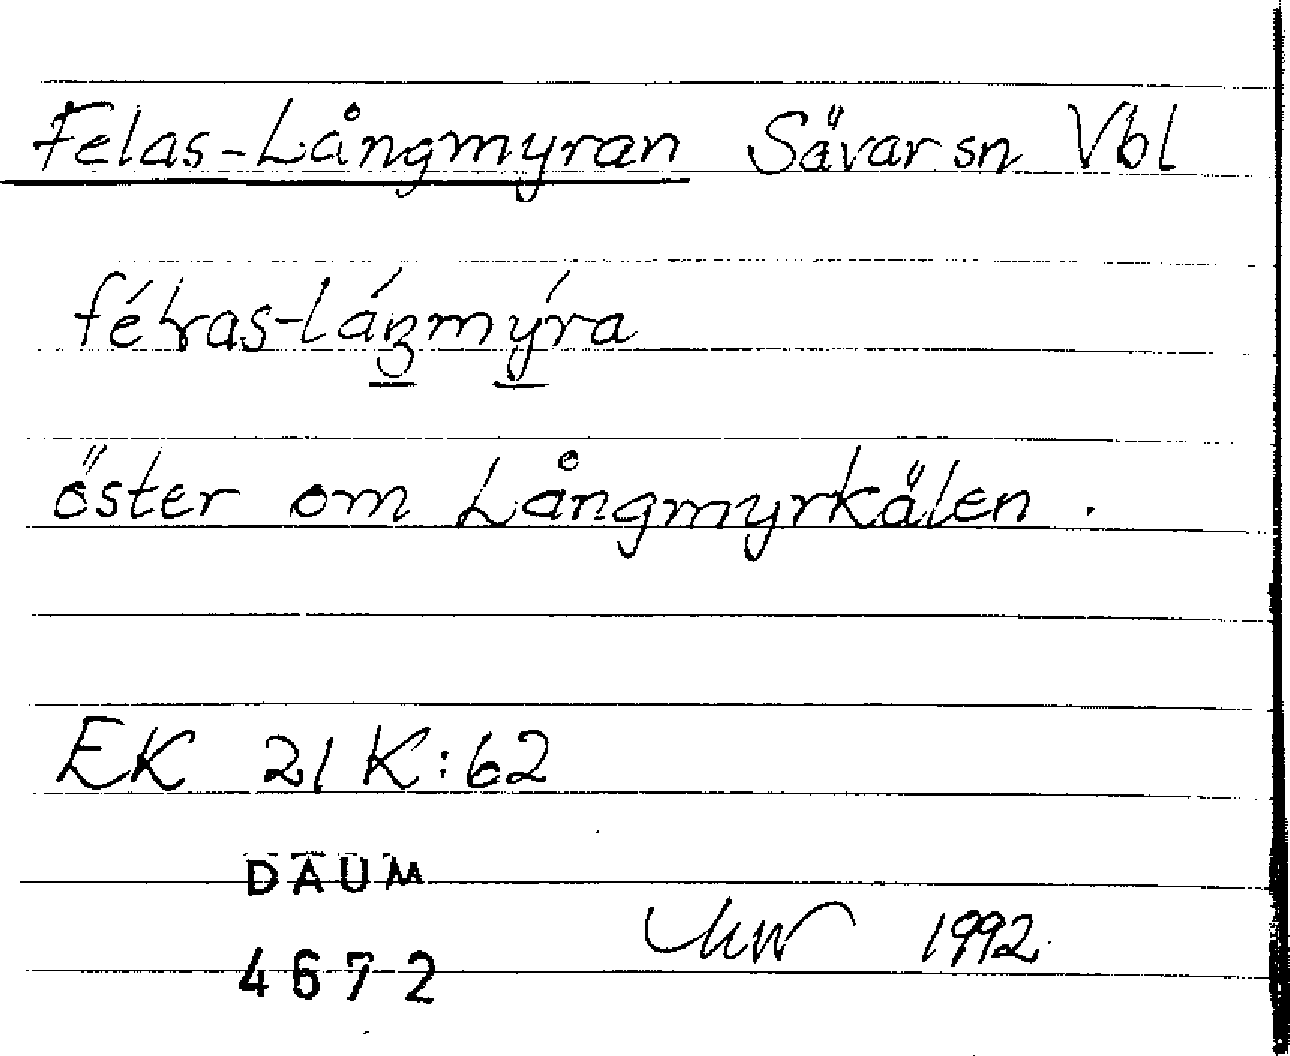 Felas-Långmyran Sävar sn Vbl
öster om Långmyrkälen.
EK 21 K:62
DAUM
1992
4672